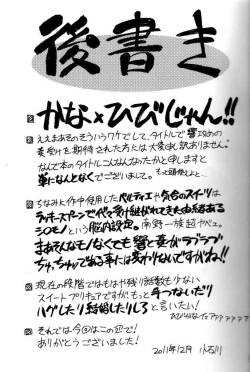 後書き
かな×ひびじゃん!!
ええまあそのそういうワケでして、タイトルで響攻めの
奏受けを期待された方には大変申し訳ありません。
なんで本のタイトルこんなんなったかと申しますと
単になんとなくでございまして。もっと頭使えよ…
ちなみに作中使用したペルティエや気合のスイーツは
ラッキースプーンで代々受け継がれてきた由緒ある
シロモノという脳内設定。南野一族超かぃぇ。
まあそんなモノなくても響と奏がラブラブ
ちゅっちゅである事には変わりないですがね!!
現在の段階ではもはや残り話数も少ない
スイートプリキュアですが、もっと手つないだり
ハグしたり結婚したりしろと言いたい!
それでは今回はこの辺で!
ありがとうございました!
2011年12月 小石川